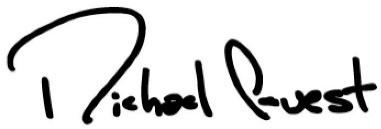 Michael Guest